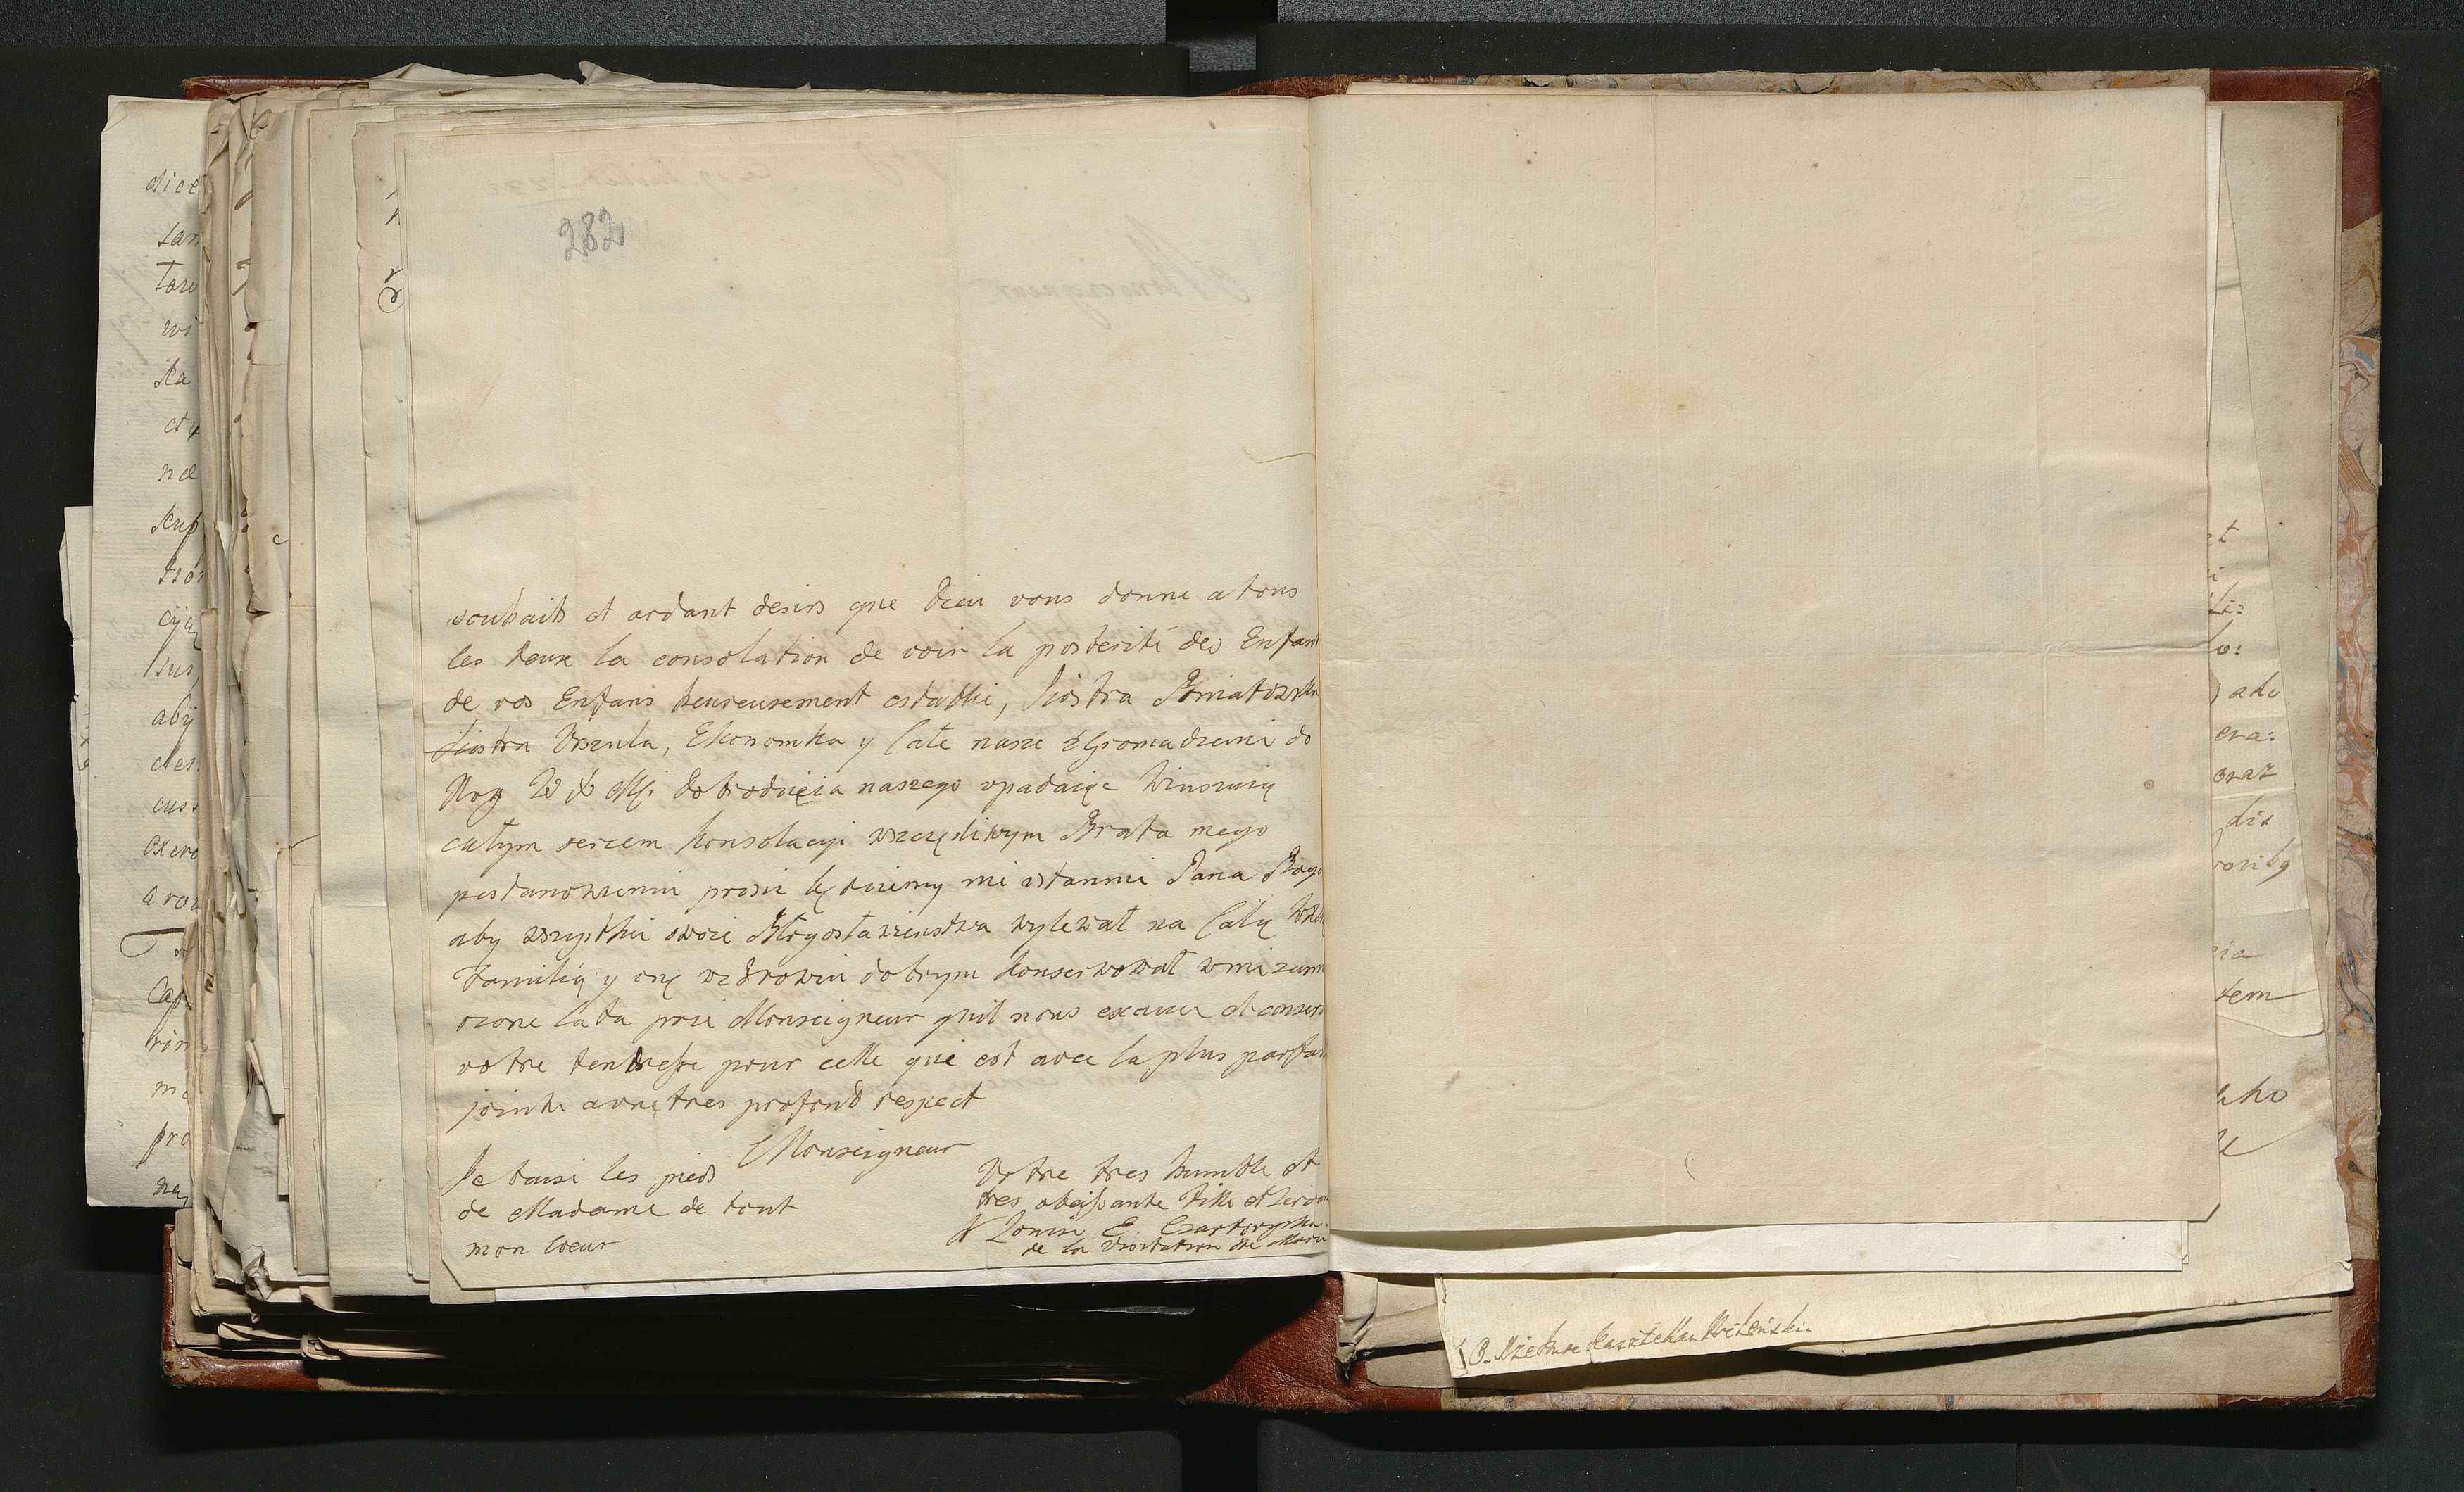 282
souhaits et ardant desirs que Dieu vous donne a tous
les deux la consolation de voir la posterité des Enfan
de vos Enfans heureusement establi, Siostra Poniatowska
Siostra Urszula, Ekonomka y Całe nasze zgromadzenie do
Nog W X Mci Dobrodzieia naszego upadaiąc winszuię
całym sercem konsolacyi szczęsliwym Brata mego
postanowieniu prosic będziemy nie ustannie Pana Boga
aby wszystkie swoie Błogosławienstwa wylewał na Całą
Familią y onę w zdrowiu dobrym konserwował w nie zam
rzone lata prie Monseigneur quil nous exauce et conserv
votre tendresse pour celle qui est avec la plus parfai
jointe avec tres profond respect
Monseigneur
Je baise les pieds
de Madame de tout
mon Coeur
Votre tres humble et
tres obeissante Fille et Serva
Louise E. Czartoryska
de la Visitation Ste Marie
dice
tar
wi
ka
na
sus
aby
cuss
pro
ado
era:
oraz
dia
nia
tem